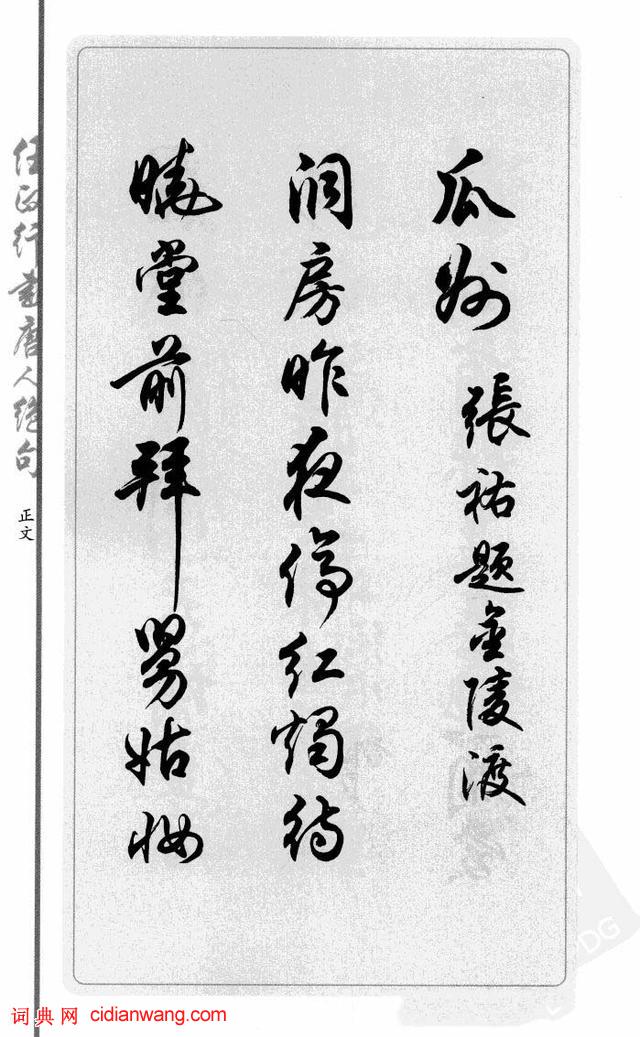 瓜州 張祐題金陵渡
洞房昨夜停红燭待
曉堂前拜舅姑妝
任政行書唐人绝句
正文
词典网 cidianwang.com